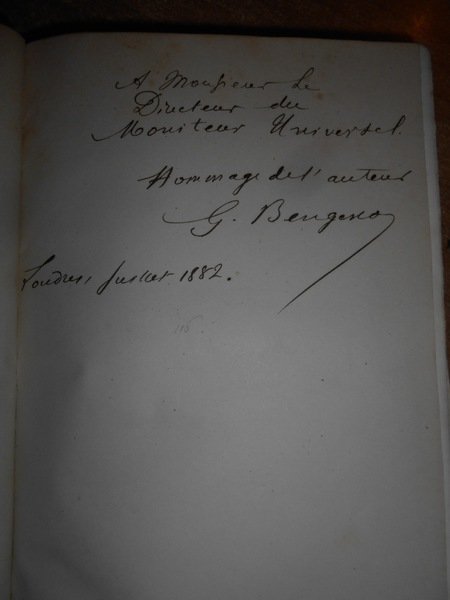 A Monsieur le
Directeur du
Moniteur Universel.
Hommage de l'auteur
G. Bengesco
Londres, Juillet 1882.